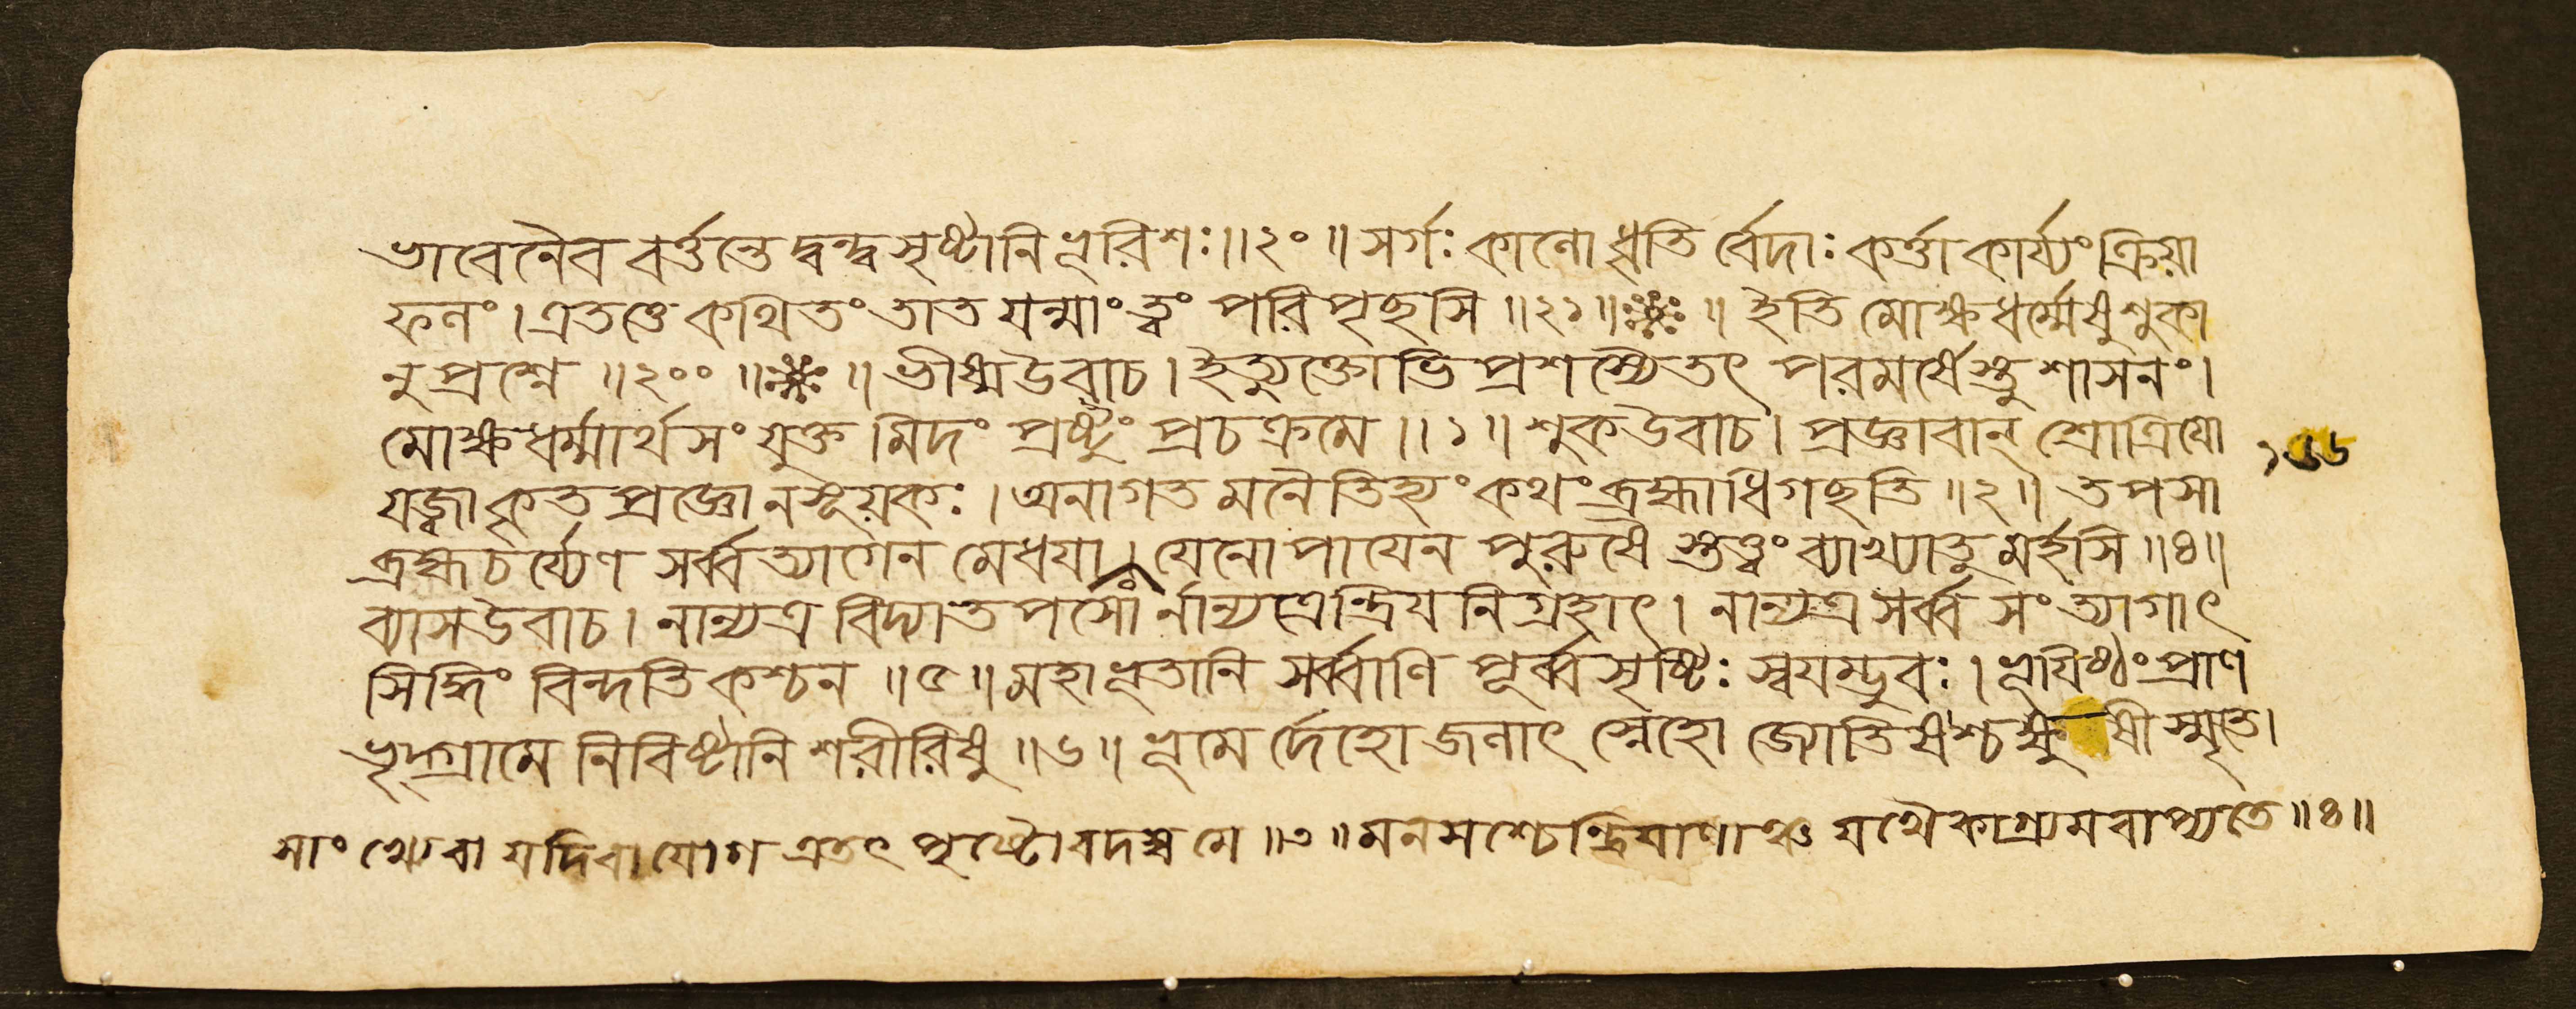 ভাবেনৈব বর্ত্তন্তে দ্বন্দ্বসৃষ্টানি ভূরিশঃ॥২০॥ সর্গঃ কালো ধৃতি র্বেদাঃ কর্ত্তা কার্য্যং ক্রিয়া
ফলং। এতত্তে কথিতং তাত যন্মাং ত্বং পরিপৃছসি॥২১॥❉॥ ইতি মোক্ষধর্ম্মেষু শুকা
নুপ্রশ্নে॥২০০॥❉॥ ভীষ্ম উবাচ। ইত্যুক্তোভিপ্রশস্যৈতৎ পরমর্ষেস্তু শাসনং।
মোক্ষধর্ম্মার্থসংযুক্তমিদং প্রষ্টুং প্রচক্রমে॥১॥ শুক উবাচ। প্রজ্ঞাবান্ শ্রোত্রিযো
যজ্বা কৃতপ্রজ্ঞোনসূয়কঃ। অনাগতমনৈতিহ্যং কথং ব্রহ্মাধিগছতি॥২॥ তপসা
ব্রহ্মচর্য্যেণ সর্ব্বত্যাগেন মেধযা। যেনোপাযেন পুরুষৈ স্তত্ত্বং ব্যাখ্যাতুমর্হসি॥৪॥
ব্যাস উবাচ। নান্যত্র বিদ্যাতপসো র্নান্যত্রেন্দ্রিয নিগ্রহাৎ। নান্যত্র সর্ব্বসংত্যাগাৎ
সিদ্ধিং বিন্দতি কশ্চন॥৫॥ মহাভূতানি সর্ব্বাণি পূর্ব্বসৃষ্টিঃ স্বযম্ভুবঃ। ভূযিষ্ঠং প্রাণ
ভৃদ্গ্রামে নিবিষ্টানি শরীরিষু॥৬॥ ভূমে র্দেহো জলাৎ স্নেহো জ্যোতিষশ্চক্ষুষী স্মৃতে।
সাংখ্যেবা যদিবা যোগ এতৎ পৃষ্টো বদস্ব মে॥৩॥ মনসশ্চেন্দ্রিযাণাঞ্চ যথৈকাগ্র্যমবাপ্যতে॥৪॥